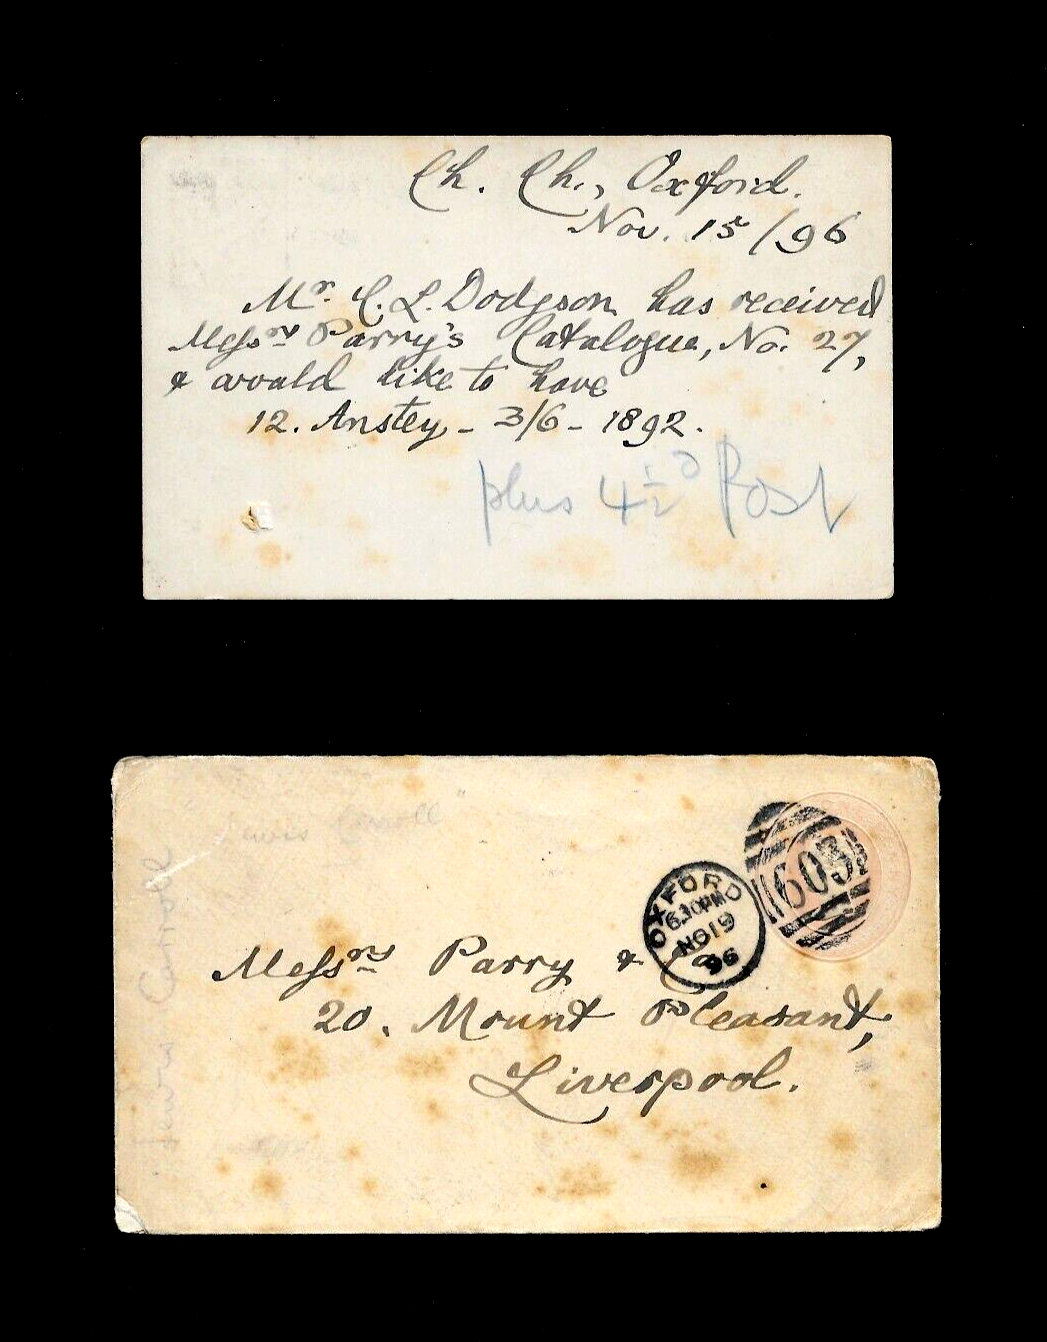 Ch. Ch., Oxford.
Nov. 15/96
Mr. C. L. Dodgson has received
Messrs Parry's Catalogue, No. 27,
& would like to have
12. Anstey - 3/6 - 1892.
plus 4½d Post
Lewis Carroll"
Lewis Carroll
603
OXFORD
6.30PM
NO 19
96
Messrs Parry & Co
20. Mount Pleasant,
Liverpool.